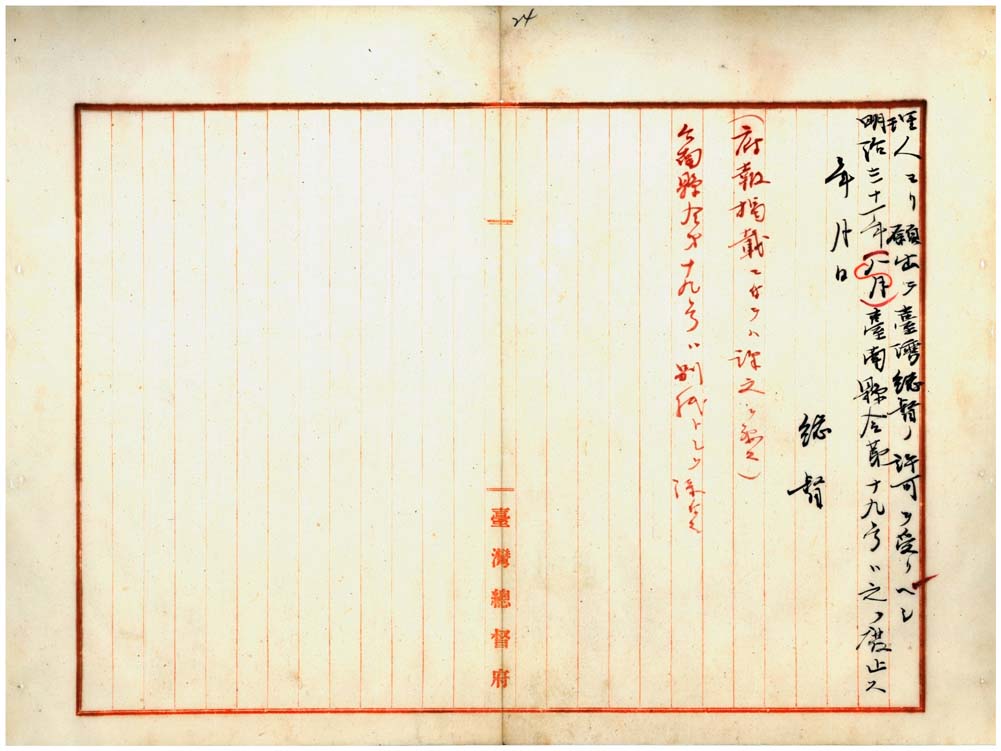 24
理人ヨリ願出テ臺灣總督ノ許可ヲ受クヘシ
明治三十一年(八月)臺南縣令第十九号ハ之ヲ廢止ス
年月日
總督
(府報掲載ニ付テハ譯文ヲ要ス)
台南縣令第十九号ハ別紙トシテ添付ス
臺灣總督府